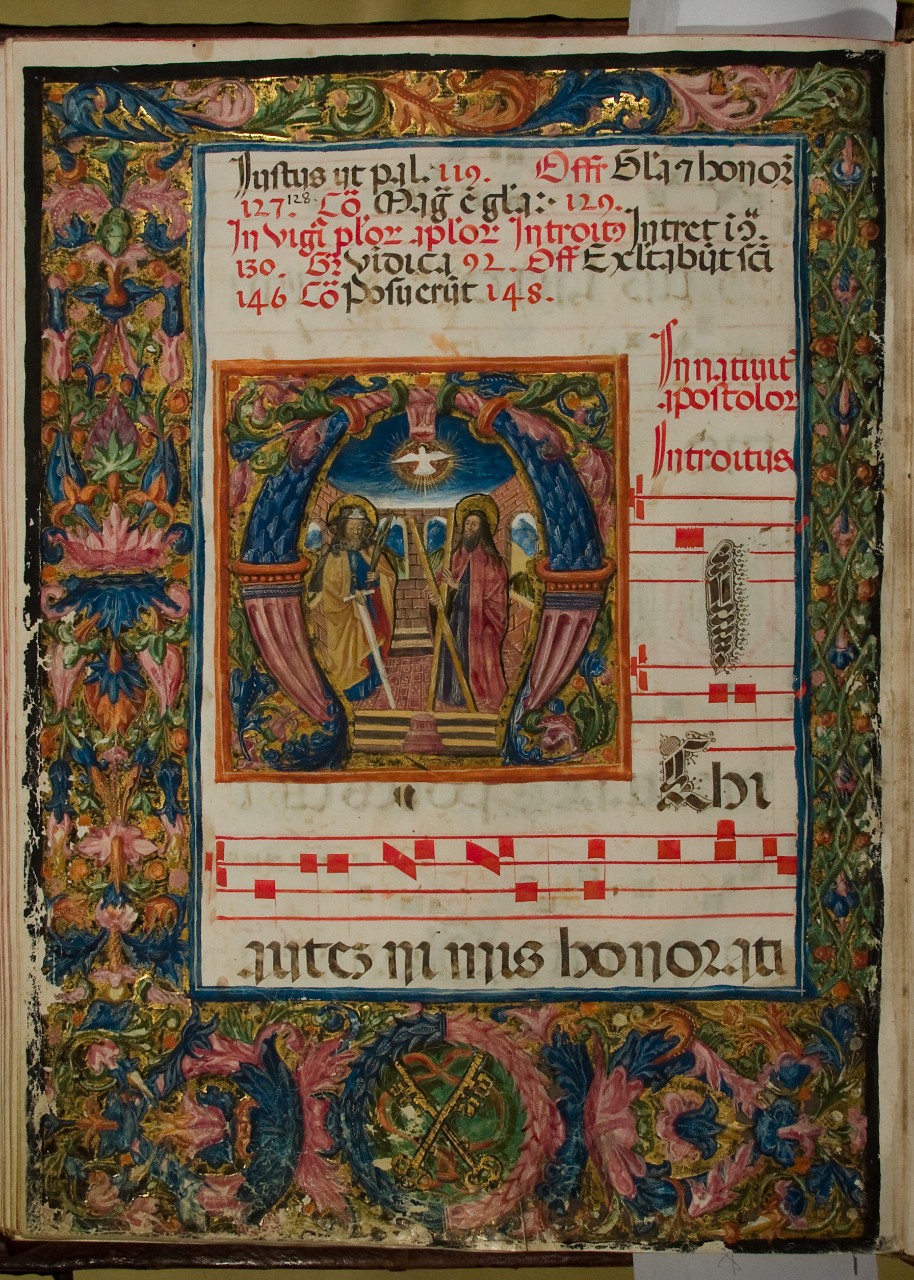 Justus ut pal. 119. Offr Gl'a ⁊ honor̃
127. 128. Cõ Mag̃ ẽ gl'a: 129.
In vigi' plor aplor Introitꝰ Intret ĩ
130. Gr̃ Vidica 92. Off Exultabũt sci
146 Cõ Posuerũt 148.
In natiuit
apostolor
Introitus
M
i
chi
autez nimis honorati